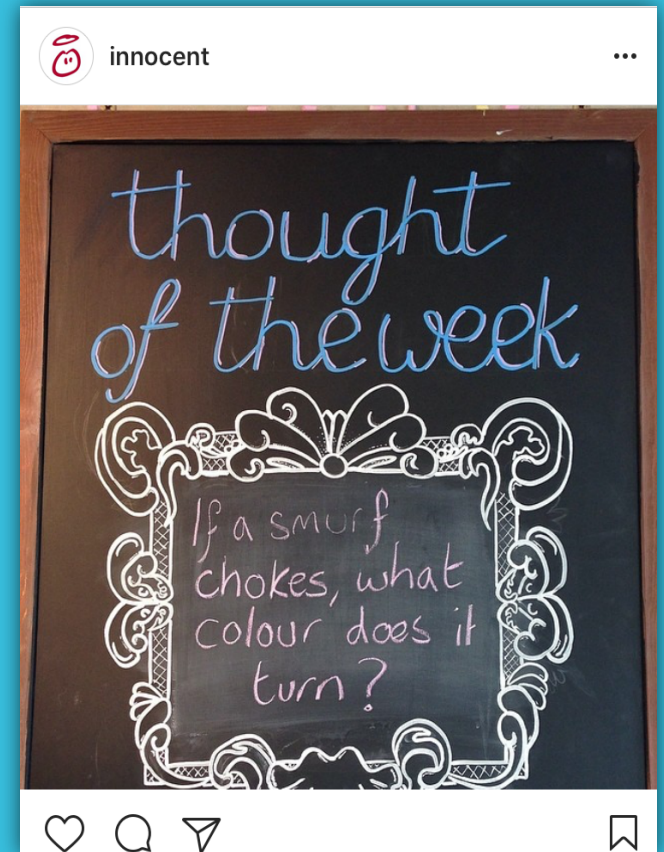 innocent
thought
of the week
If a smurf
chokes, what
colour does it
turn?